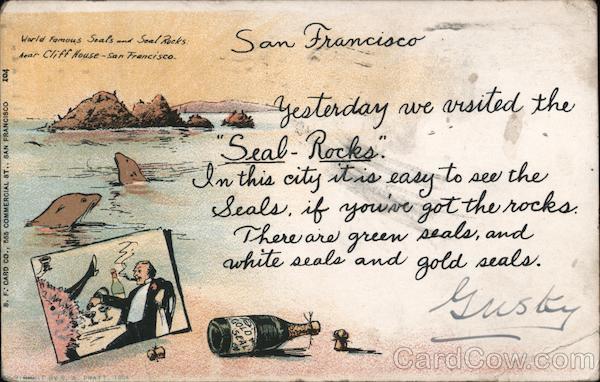 World Famous Seals and Seal Rocks
near Cliff House - San Francisco.
San Francisco
Yesterday we visited the
"Seal-Rocks".
In this city it is easy to see the
Seals, if you've got the rocks.
There are green seals, and
white seals and gold seals.
Gusky
S. F. CARD CO., 565 COMMERCIAL ST., SAN FRANCISCO 104
GOLD
SEAL
CardCow.com